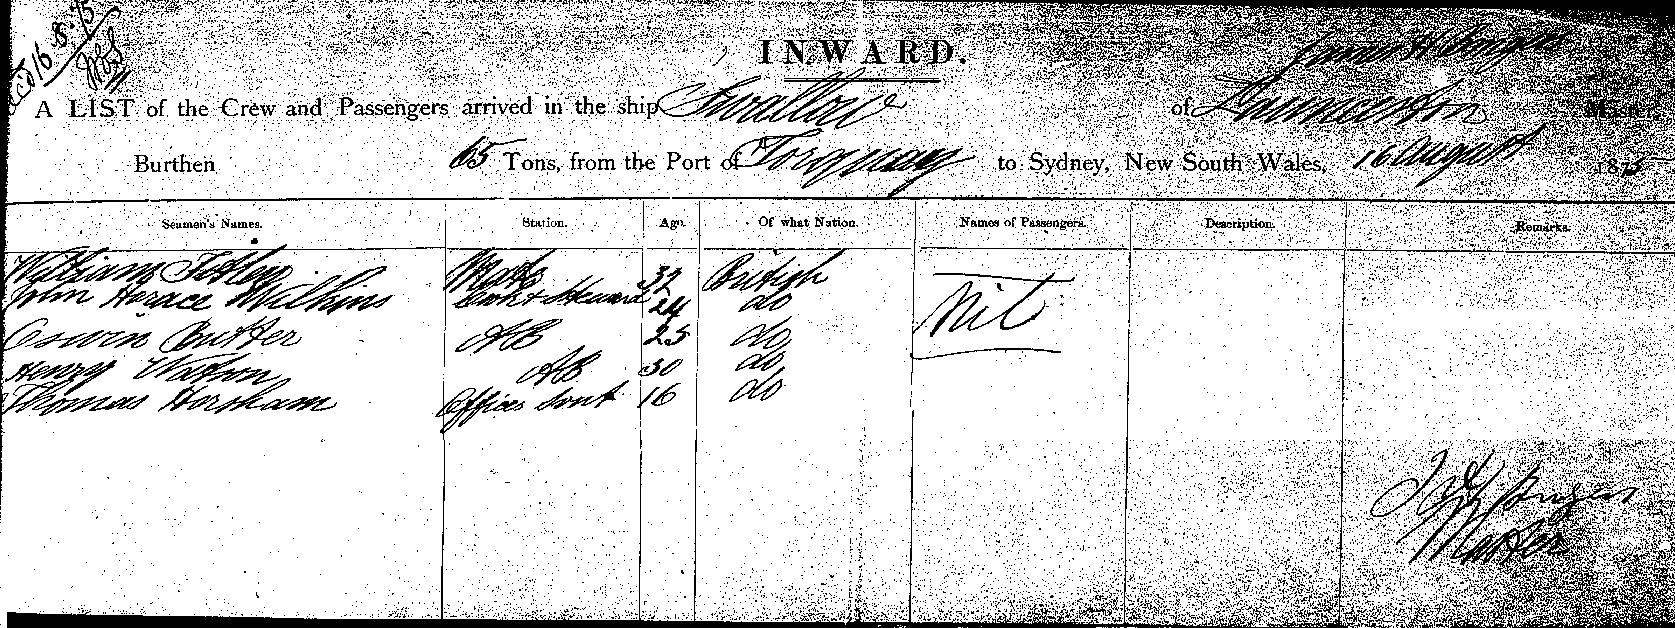 Rec'd 16.8.75
INWARD.
James H
A LIST of the Crew and Passengers arrived in the ship Swallow of Launceston Master,
Burthen 65 Tons, from the Port of Torquay to Sydney, New South Wales, 16 August 1875
Seamen's Names. Station. Age. Of what Nation. Names of Passengers. Description. Remarks.
William Mate 32 British
John Horace Wilkins Cook & Steward 24 do Nil
Oswin 25 do
AB
Henry Watson AB 30 do
Thomas Horsham Officers Svnt 16 do
Master